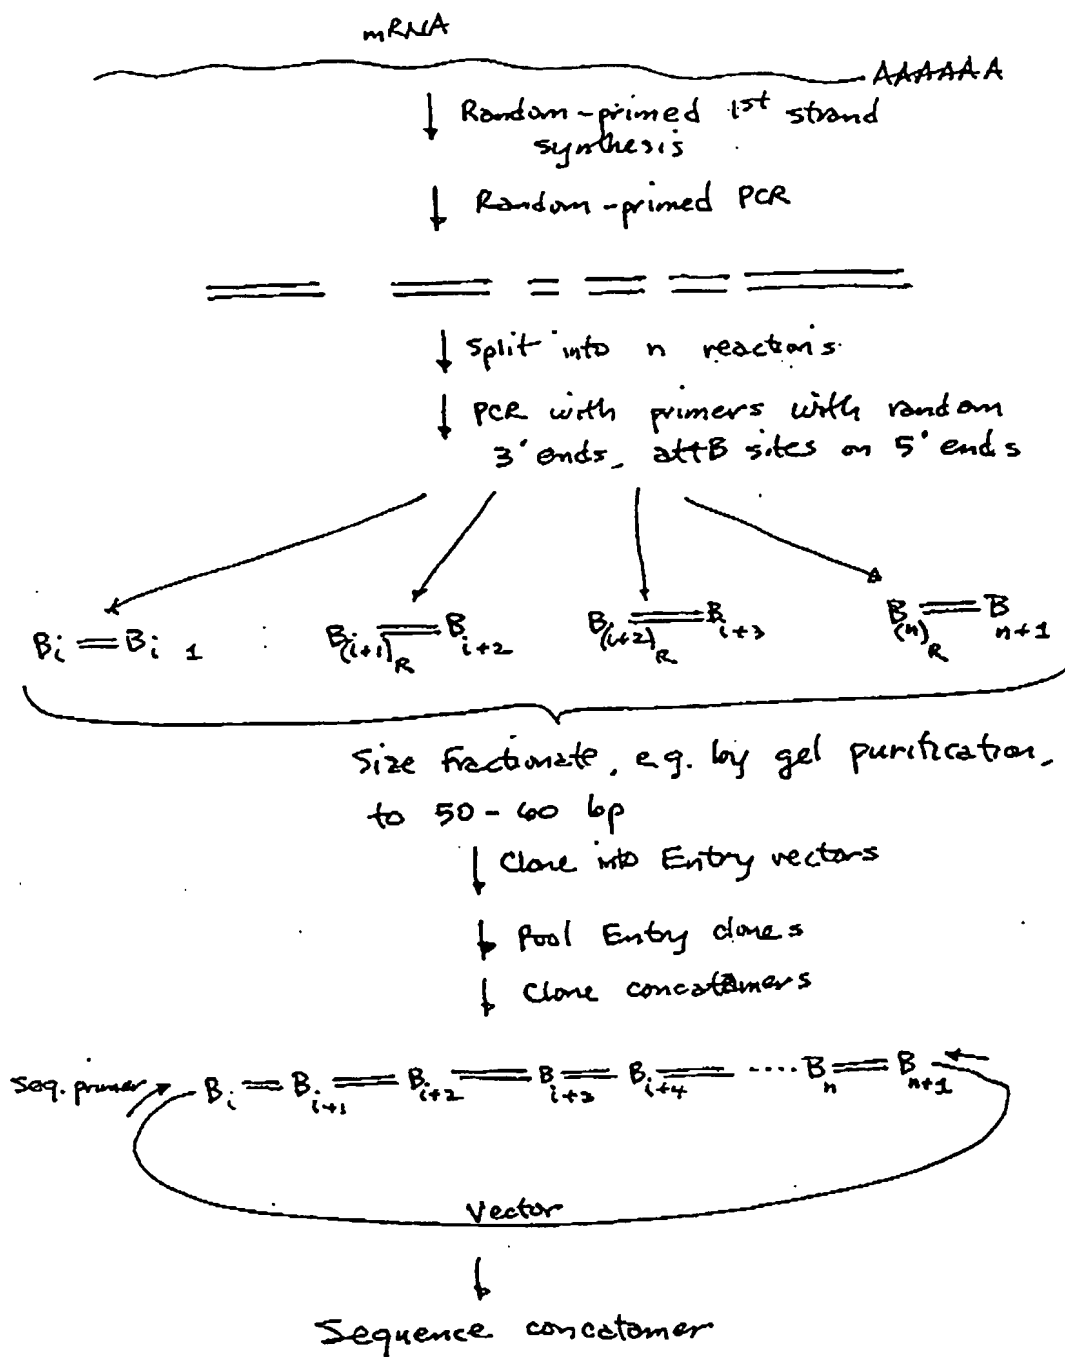 mRNA
AAAAAA
Random-primed 1st strand
synthesis
Random-primed PCR
Split into n reactions.
PCR with primers with random
3' ends, attB sites on 5' ends
Bi Bi 1 B(i+1)R Bi+2 B(i+2)R Bi+3 B(n)R Bn+1
Size fractionate, e.g. by gel purification,
to 50-60 bp
Clone into Entry vectors
Pool Entry clones
Clone concatamers
Seq. primer Bi Bi+1 Bi+2 Bi+3 Bi+4 .... Bn Bn+1
Vector
Sequence concatamer